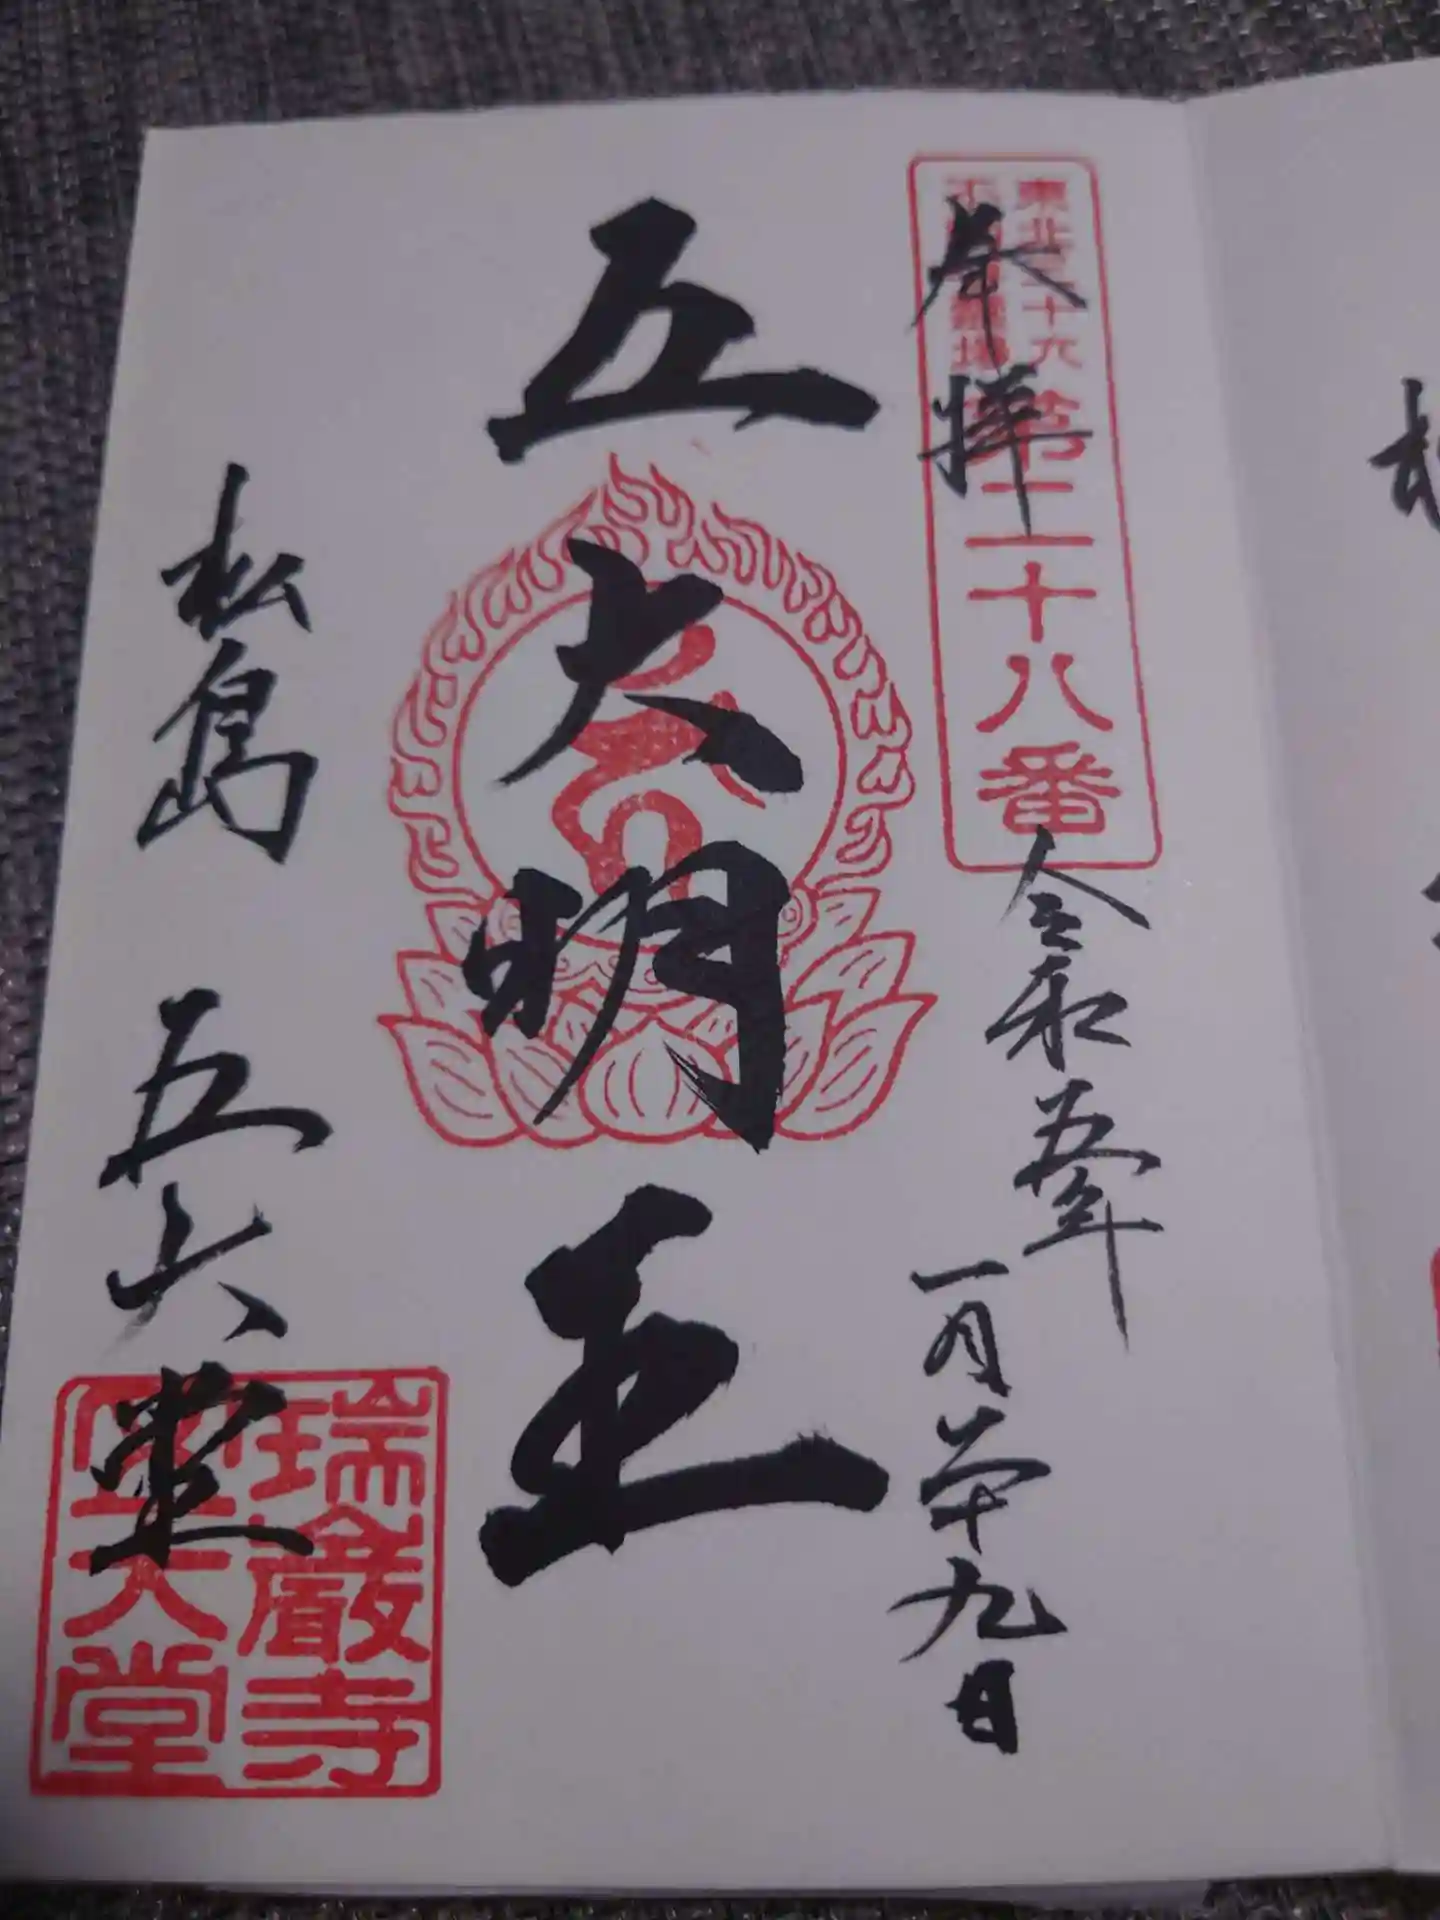 奉拝
東北三十六
不動尊霊場
第二十八番
令和五年
一月二十九日
五大明王
松島 五大堂
瑞巌寺
五大堂